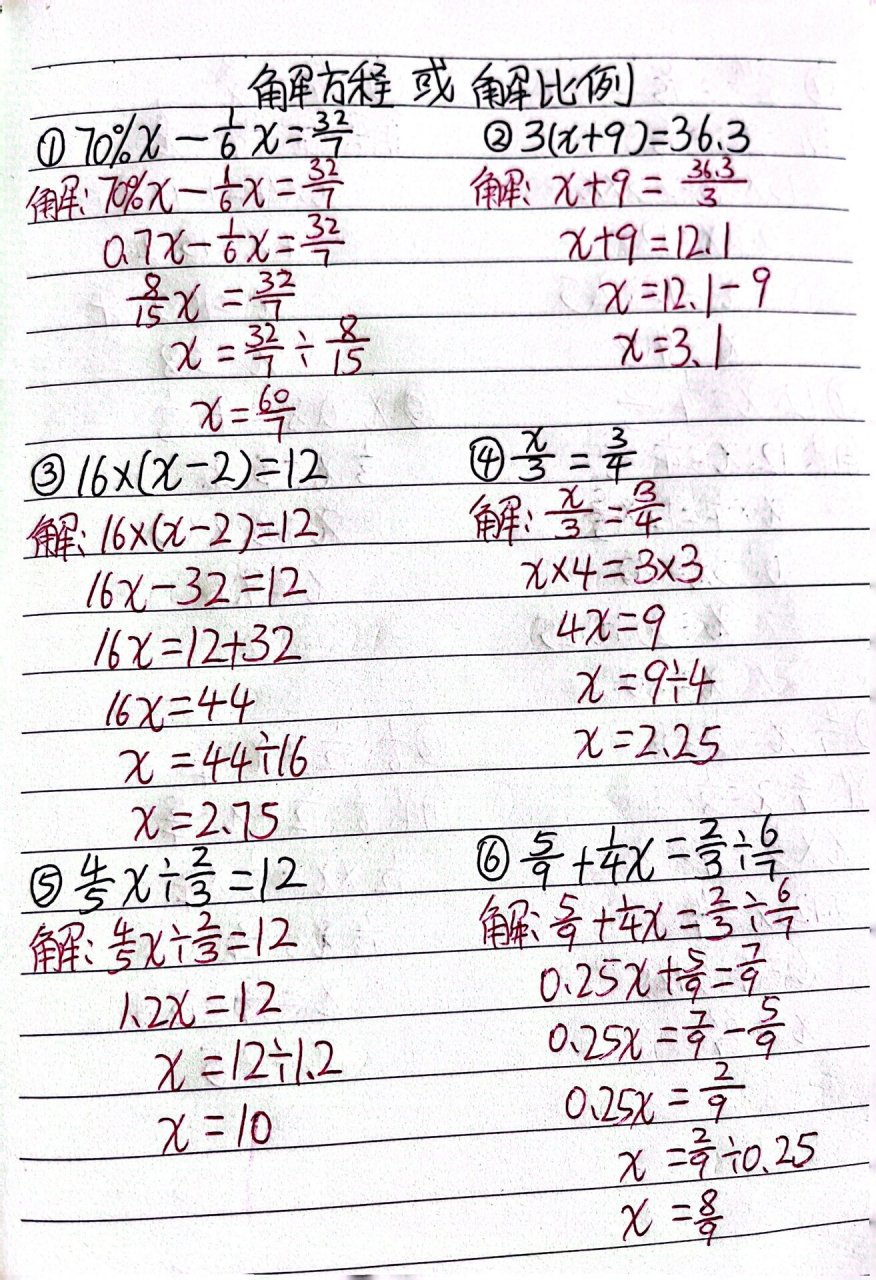 解方程 或 解比例
① 70%x - 1/6 x = 32/7
解: 70%x - 1/6 x = 32/7
0.7x - 1/6 x = 32/7
8/15 x = 32/7
x = 32/7 ÷ 8/15
x = 60/7
② 3(x+9)=36.3
解: x+9 = 36.3/3
x+9=12.1
x=12.1-9
x=3.1
③ 16×(x-2)=12
解: 16×(x-2)=12
16x-32=12
16x=12+32
16x=44
x=44÷16
x=2.75
④ x/3 = 3/4
解: x/3 = 3/4
x×4=3×3
4x=9
x=9÷4
x=2.25
⑤ 4/5 x ÷ 2/3 = 12
解: 4/5 x ÷ 2/3 = 12
1.2x=12
x=12÷1.2
x=10
⑥ 5/9 + 1/4 x = 2/3 ÷ 6/7
解: 5/9 + 1/4 x = 2/3 ÷ 6/7
0.25x + 5/9 = 7/9
0.25x = 7/9 - 5/9
0.25x = 2/9
x = 2/9 ÷ 0.25
x = 8/9